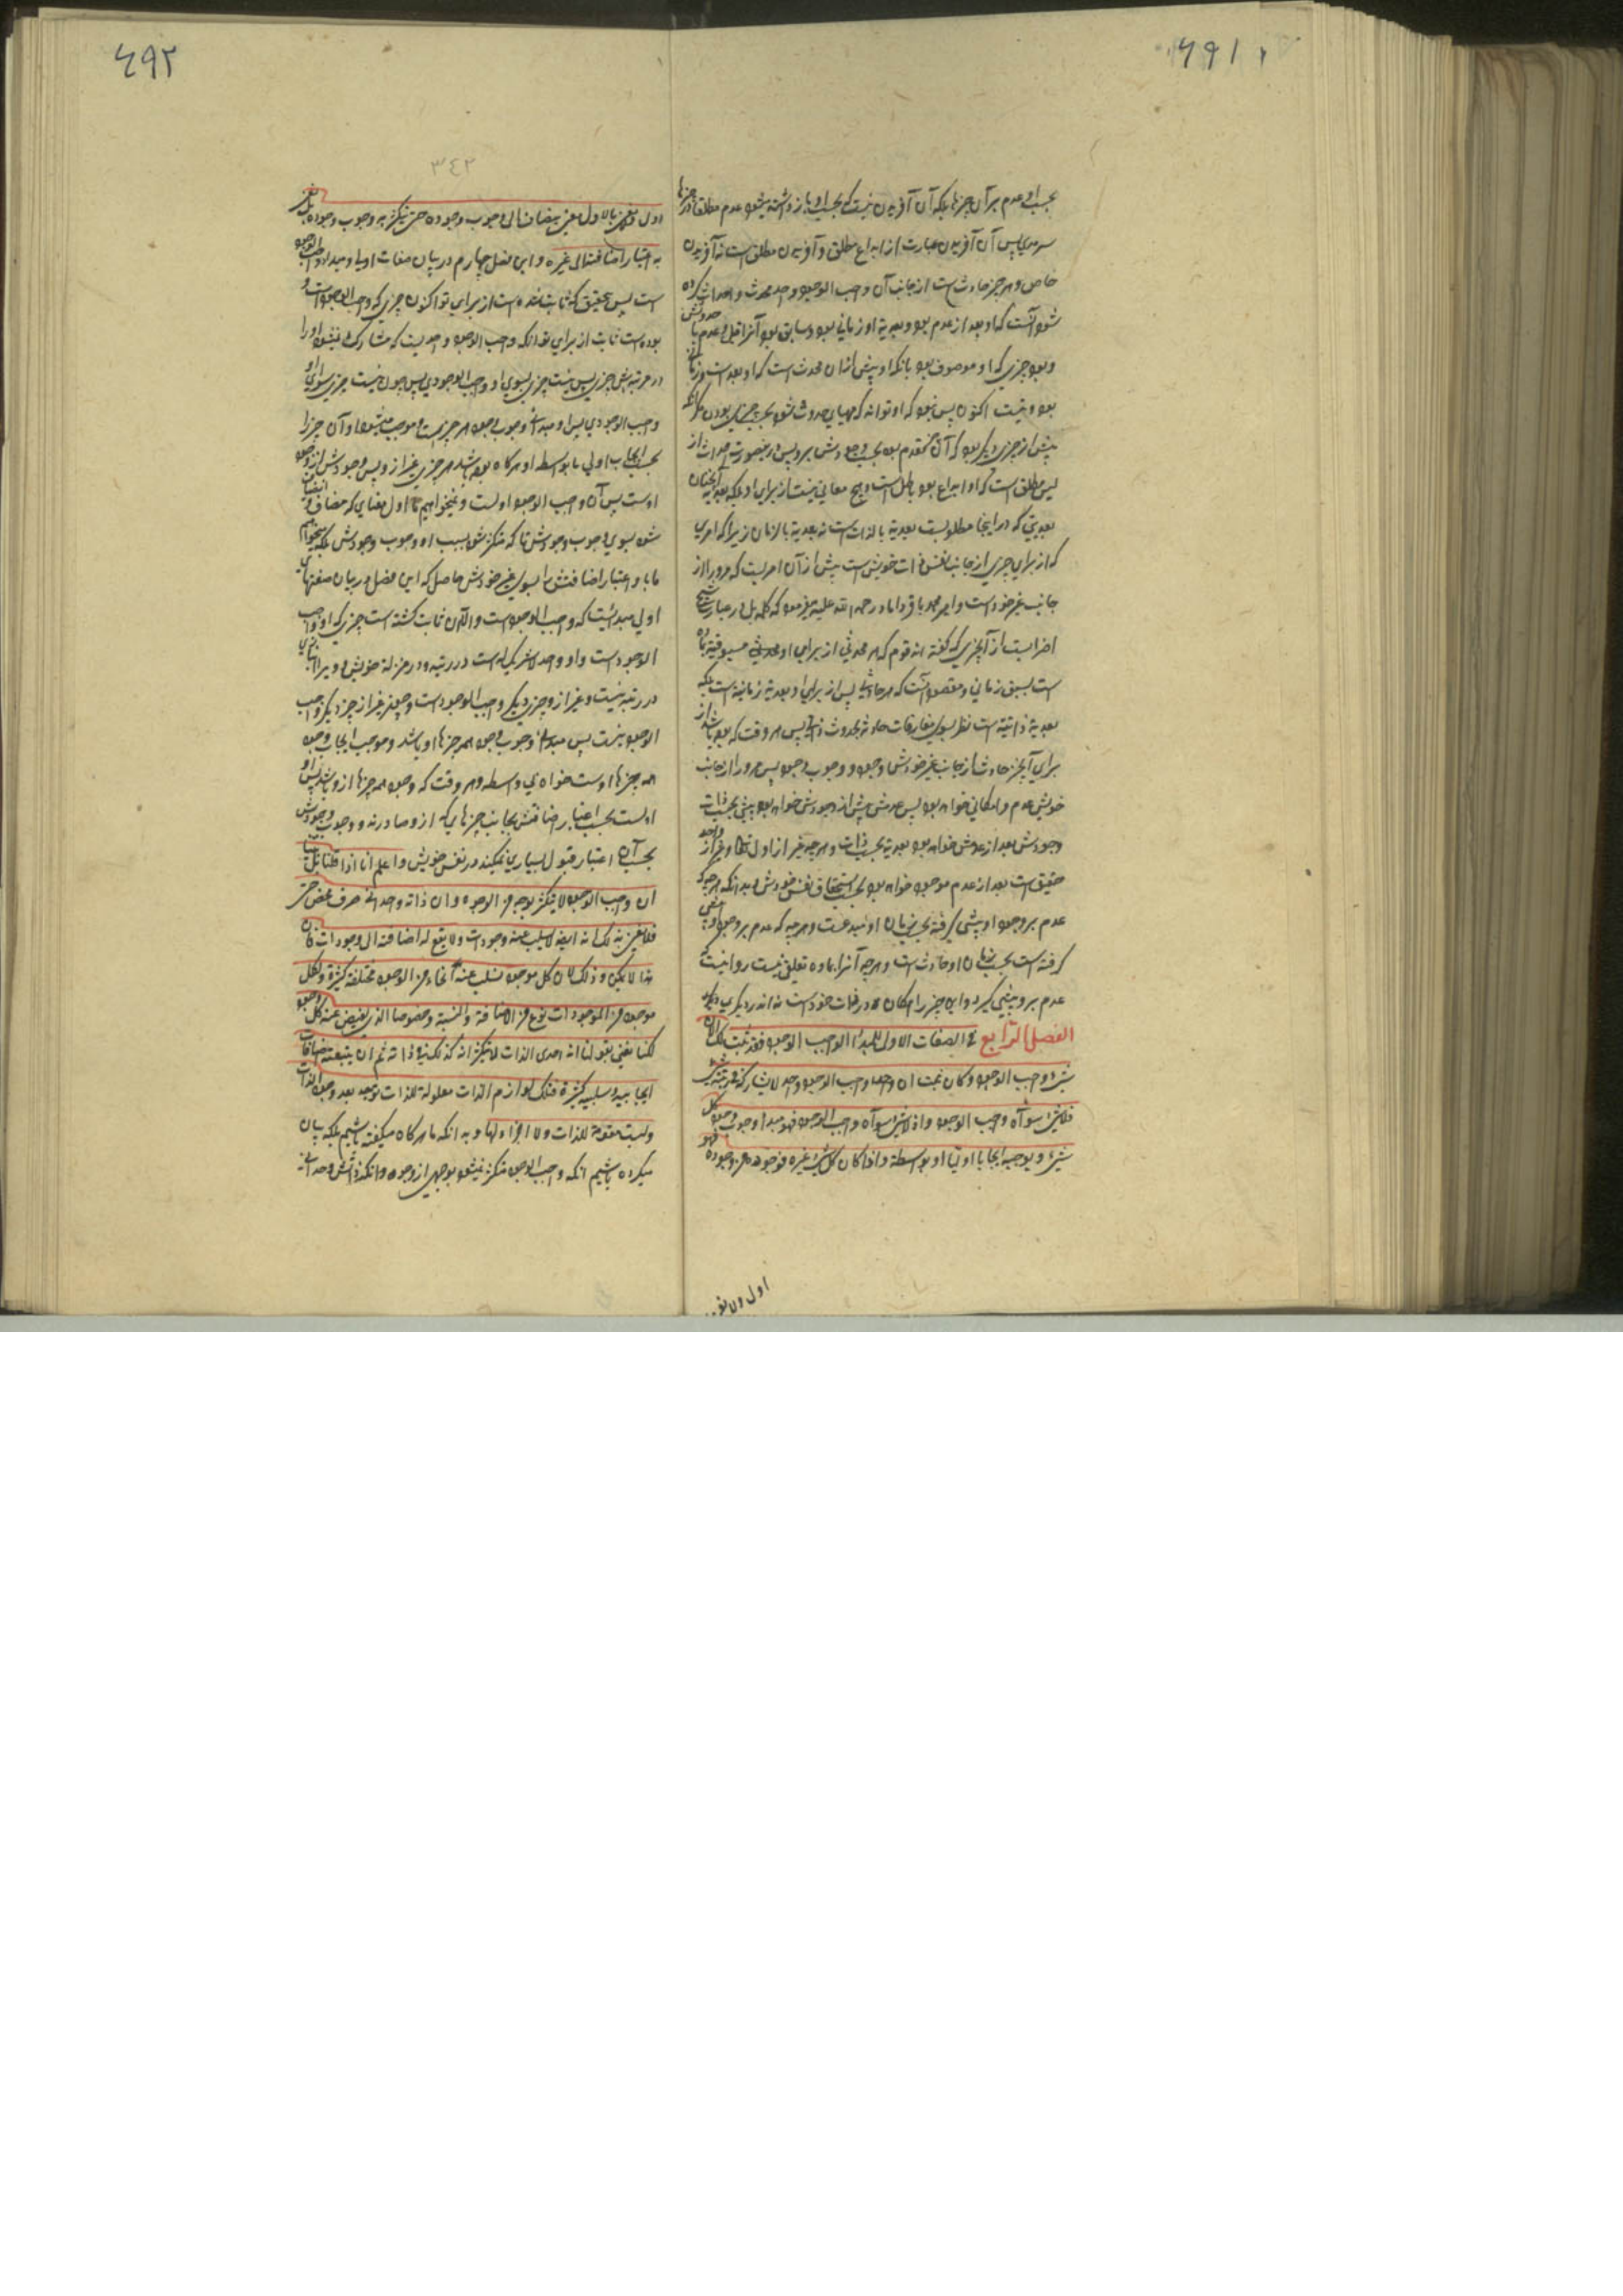 ٦٩١
بحسب او عدم بر آن چیزها بلکه آن آفریدن نیست که بحسب او باز داشته میشود عدم مطلقا در چیزها
سرمدی پس آن آفریدن عبارت از ابداع مطلق و آفریدن مطلق است نه آفریدن
خاص و هر چیز حادث است از جانب آن واجب الوجود و احد محدث و احداث کرده
شود آنست که او بعد از عدم بود و بعدیة او زمانی بود و سابق بود آنرا قبل و عدم با حدوثش
و بود چیزی که او موصوف بود بانکه او پیش ازان محدث است که او بعد است و زمانی
بود و نیست اکنون پس نبود که او تواند که مهیای حدوث شود بحسب چیزی بودن مگر آنکه
پیش از چیزی دیگر بود که آن متقدم بود بحسب وجودش برو پس درینصورت احداث از
لیس مطلق است که او ابداع بود باطل است و هیچ معانی نیست از برای او بلکه بعدیة آنچنان
بعدیتی که در اینجا مطلوبست بعدیة بالذات است نه بعدیة بالزمان زیرا که امری
که از برای چیزی از جانب نفس ذات خویش است پیش از آن امریست که مرو را از
جانب غیر خود است و امیر محمد باقر داماد رحمه الله علیه میفرمود که کلمه بل در عبارت شیخ
اضرابیست از آنچیزی که گفته اند قوم که هر محدثی از برای او محدثی مسبوقیة بماده
است بسبق زمانی و مقصود آنست که هر حادثی پس از برای او بعدیة زمانیة است بلکه
بعدیة ذاتیة است نظر بسوی مفارقات حادثه بحدوث ذاتی پس هر وقت که بوده باشد از
برای آنچیز حادث از جانب غیر خودش وجود و وجوب وجود پس مرو را از جانب
خویش عدم و امکانی خواهد بود پس عدمش پیش از وجودش خواهد بود پیشی بحسب ذات
وجودش بعد از عدمش خواهد بود بعدیة بحسب ذات و هر چه غیر از اول تعالی و غیر از واحد
حقیق است بعد از عدم موجود خواهد بود بحسب استحقاق نفس خودش و بدانکه هر چه که
عدم بر وجود او پیشی گرفته بحسب زمان او مبدعست و هر چه که عدم بر وجود او پیشی
گرفته است بحسب زمان او حادث است و هر چه آنرا بماده تعلق نیست روا نیست که
عدم برو پیشی گیرد و این چیز را امکان در ذات خود است نه اندر دیگری دیگر
الفصل الرابع فی الصفات الاولی للمبدأ الواجب الوجود فقد ثبت لک الان
شیء واجب الوجود و کان ثبت ان واجب الوجود واحد لا یشارکه فی رتبته شیء
فلا شیء سواه واجب الوجود و اذ لا شیء سواه واجب الوجود فهو مبدأ وجوب وجود کل
شیء و یوجبه ایجابا اولیا او بواسطة و اذا کان کل شیء غیره فوجوده من وجوده فهو
اول ولا نعنی
٦٩٢
٣٤٢
اول و لا نعنی بالاول معنی یضاف الی وجوب وجوده حتی یتکثر به وجوب وجوده بل نعنی
به اعتبار اضافته الی غیره و این فصل چهارم در بیان صفات اولی و مبداء واجب الوجود
است پس بتحقیق که ثابت شده است از برای تو اکنون چیزی که واجب الوجود است و
بوده است ثابت از برای تو آنکه واجب الوجود واحدیست که مشارک نمیشود او را
در مرتبه اش چیزی پس نیست چیزی بسوی او واجب الوجودی پس چون نیست چیزی سوای او
واجب الوجودی پس او مبداء وجوب وجود هر چیزیست و موجب میشود او آن چیز را
بحسب ایجاب اولی یا بواسطه او هرگاه بوده باشد هر چیزی غیر از و پس وجودش از وجود
اوست پس آن واجب الوجود اولست و نمیخواهیم ما اول معنایی که مضاف
شود بسوی وجوب وجودش تا که متکثر شود بسبب او وجوب وجودش بلکه میخواهیم
ما باو اعتبار اضافتش را بسوی غیر خودش حاصل که این فصل در بیان صفتهای
اولی مبدئیست که واجب الوجود است و الآن ثابت گشته است چیزی که او واجب
الوجود است و او واحد لا شریک له است در رتبه و در منزلة خویش و ویرا انبازی
در رتبه نیست و غیر از و چیزی دیگر واجب الوجود است و چون غیر از چیز دیگر واجب
الوجود نیست پس مبداء وجوب وجود همه چیزها او باشد و موجب ایجاب وجود
همه چیزها اوست خواه بی واسطه و هر وقت که وجود همه چیزها از و باشد پس او
اولست بحسب اعتبار اضافتش بجانب چیزهایی که از و صادرند و وجوب وجودش
بحسب آن اعتبار قبول بسیاری نمیکند در نفس خویش و اعلم انا اذا قلنا بل بینا
ان واجب الوجود لا یتکثر بوجه من الوجوه و ان ذاته وحدانی صرف محض حق
فلا نعنی بذلک انه ایضا لا یسلب عنه وجودات و لا یقع له اضافة الی وجودات فان
هذا لا یمکن و ذلک لان کل موجود تسلب عنه انحاء من الوجود مختلفة کثیرة و لکل
موجود من الموجودات نوع من الاضافة و النسبة و خصوصا الذی یفیض عنه کل وجود
لکنا نعنی بقولنا انه احدی الذات لا یتکثر انه کذلک فی ذاته ثم ان یتبعه اضافات
ایجابیة و سلبیة کثیرة فتلک لوازم الذات معلولة للذات توجد بعد وجود الذات
و لیست مقومة للذات و لا اجزاء لها و بدانکه ما هرگاه میگفته باشیم بلکه بیان
میکرده باشیم آنکه واجب الوجود متکثر نمیشود بوجهی از وجوه و آنکه ذاتش وحدانی